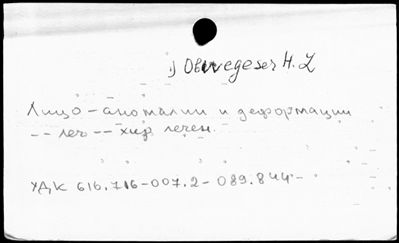 1) Obwegeser H. L
Лицо - аномалии и деформации
-- леч -- хир лечен.
УДК 616.716-007.2-089.844-